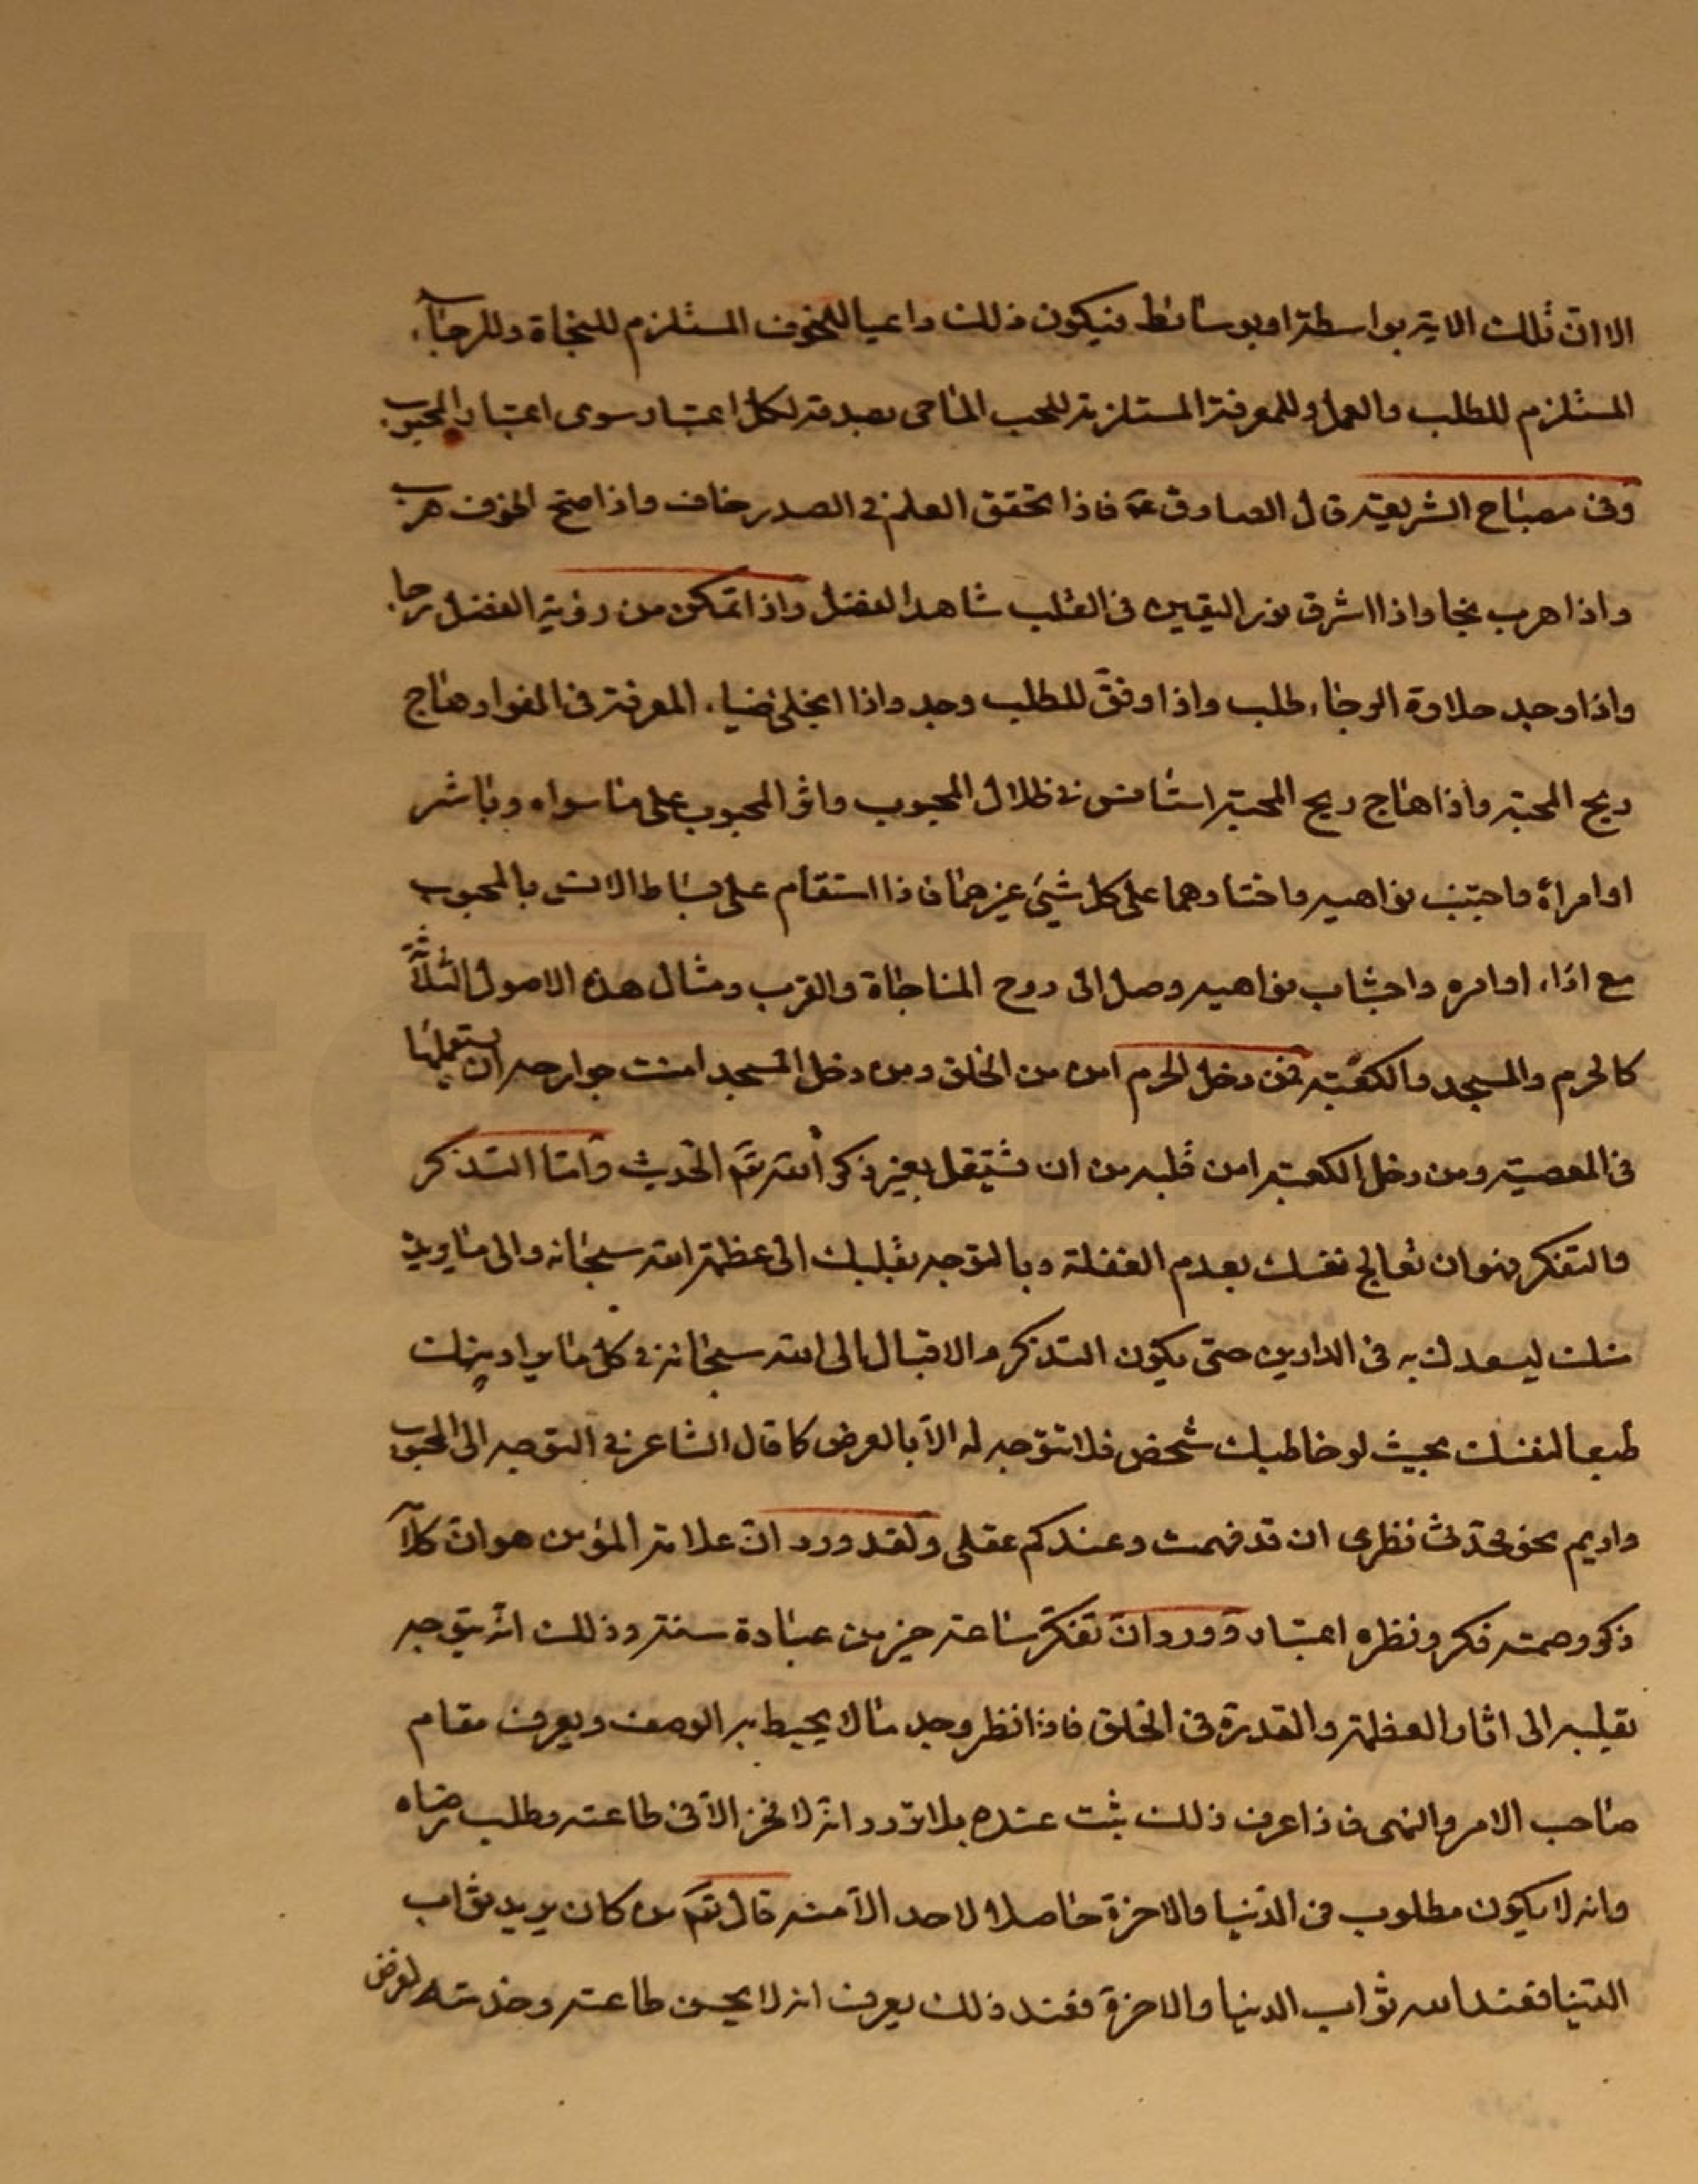 الا ان تلك الاية بواسطة او بوسائط فيكون ذلك داعيا للخوف المستلزم للنجاة وللرجاء
المستلزم للطلب والعمل وللمعرفة المستلزمة للحب الماحى بصدقه لكل اعتبار سوى اعتبار المحبوب
وفى مصباح الشريعة قال الصادق ع فاذا تحقق العلم فى الصدر خاف واذا صح الخوف هرب
واذا هرب نجا واذا اشرق نور اليقين فى القلب شاهد الفضل واذا تمكن من رؤية الفضل رجا
واذا وجد حلاوة الرجاء طلب واذا وفق للطلب وجد واذا انجلى ضياء المعرفة فى الفواد هاج
ريح المحبة واذا هاج ريح المحبة استانس فى ظلال المحبوب واثر المحبوب على ما سواه وباشر
اوامره واجتنب نواهيه واختارهما على كل شيئ غيرهما فاذا استقام على بساط الانس بالمحبوب
مع اداء اوامره واجتناب نواهيه وصل الى روح المناجاة والقرب ومثال هذه الاصول الثلاثة
كالحرم والمسجد والكعبة فمن دخل الحرم امن من الخلق ومن دخل المسجد امنت جوارحه ان يستعملها
فى المعصية ومن دخل الكعبة امن قلبه من ان تشتغل بغير ذكر الله تعَ الحديث وامّا التذكر
والتفكر فهو ان تعالج نفسك بعدم الغفلة وبالتوجه بقلبك الى عظمة الله سبحانه والى ما يريد
منك ليسعدك به فى الدارين حتى يكون التذكر والاقبال الى الله سبحانه فى كل ما يراد منك
طبعا لنفسك بحيث لو خاطبك شخص فلا تتوجه له الّا بالعرض كما قال الشاعر فى التوجه الى المحبوب
واديم نحو محدّثى نظرى ان قد فهمت وعندكم عقلى ولقد ورد انّ علامة المؤمن هو انّ كلامه
ذكر وصمته فكر ونظره اعتبار وورد انّ تفكّر ساعة خير من عبادة سنة وذلك انّه يتوجه
بقلبه الى اثار العظمة والقدرة فى الخلق فاذا نظر وجد ما لا يحيط به الوصف ويعرف مقام
صاحب الامر والنهى فاذا عرف ذلك ثبت عنده بلا تردد انه لا فخر الّا فى طاعته وطلب رضاه
وانه لا يكون مطلوب فى الدّنيا والاخرة حاصلا لاحد الّا منه قال تعَ من كان يريد ثواب
الدّنيا فعند الله ثواب الدنيا والاخرة فعند ذلك يعرف انه لا يحسن طاعته وخدمته لغرض